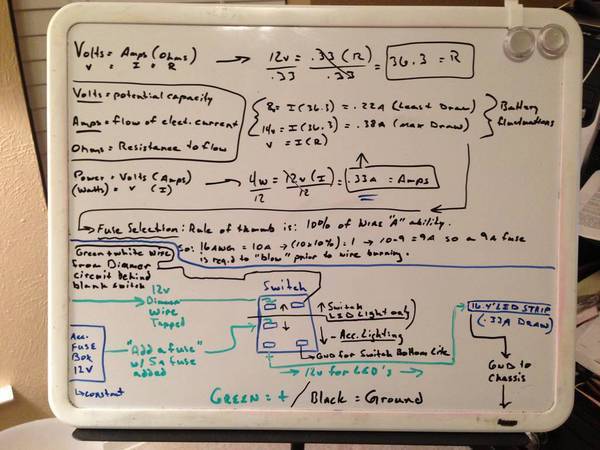 Volts = Amps (Ohms) → 12v = .33 (R) = 36.3 = R
V = I = R .33 .33
Volts = potential capacity
Amps = flow of elect. current
Ohms = Resistance to flow
8v = I(36.3) = .22A (Least Draw)
14v = I(36.3) = .38A (Max Draw)
V = I(R)
Battery
fluctuations
Power = Volts (Amps) → 4w = 12v(I) = .33A = Amps
(Watts) = V (I) 12 12
→ Fuse Selection: Rule of thumb is: 10% of Wire "A" ability.
so: 16AWG = 10A → (10x10%)=1 → 10-9=9A so a 9A fuse
is req.d to "blow" prior to wire burning.
Green+white wire
From Dimmer
circuit behind
blank switch
12v
Dimmer
Wire
Tapped
Switch
↑ Switch
LED Light only
↓ Acc. Lighting
→ GND for Switch Bottom Lite
Acc.
Fuse
Box
12V
→ constant
"Add a fuse"
w/ 5a fuse
added
→ 12v for LED's →
16.4' LED STRIP
(.33A DRAW)
GND to
Chassis
Green = + / Black = Ground